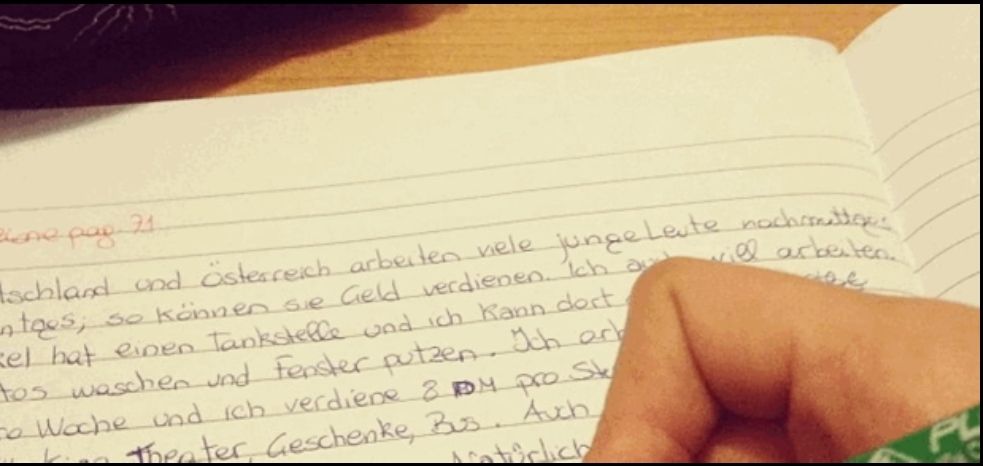 pag. 71
tschland und Österreich arbeiten viele junge Leute nachmittag
ntges; so können sie Geld verdienen. Ich will arbeiten.
kel hat einen Tankstelle und ich kann dort
tos waschen und Fenster putzen. Ich arb
o Woche und ich verdiene 8 DM pro St
Theater, Geschenke, Bus. Auch
Natürlich
PL